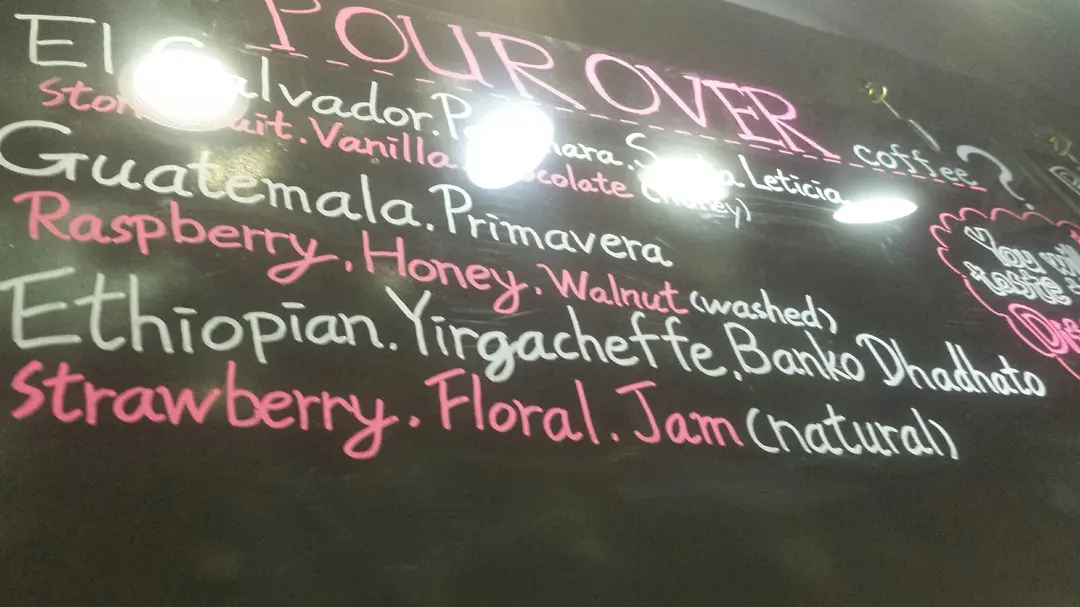 POUR OVER
coffee?
El Salvador. Santa Leticia
Stone Fruit. Vanilla. Chocolate (honey)
Guatemala. Primavera
Raspberry. Honey. Walnut (washed)
Ethiopian. Yirgacheffe. Banko Dhadhato
Strawberry. Floral. Jam (natural)
You
taste